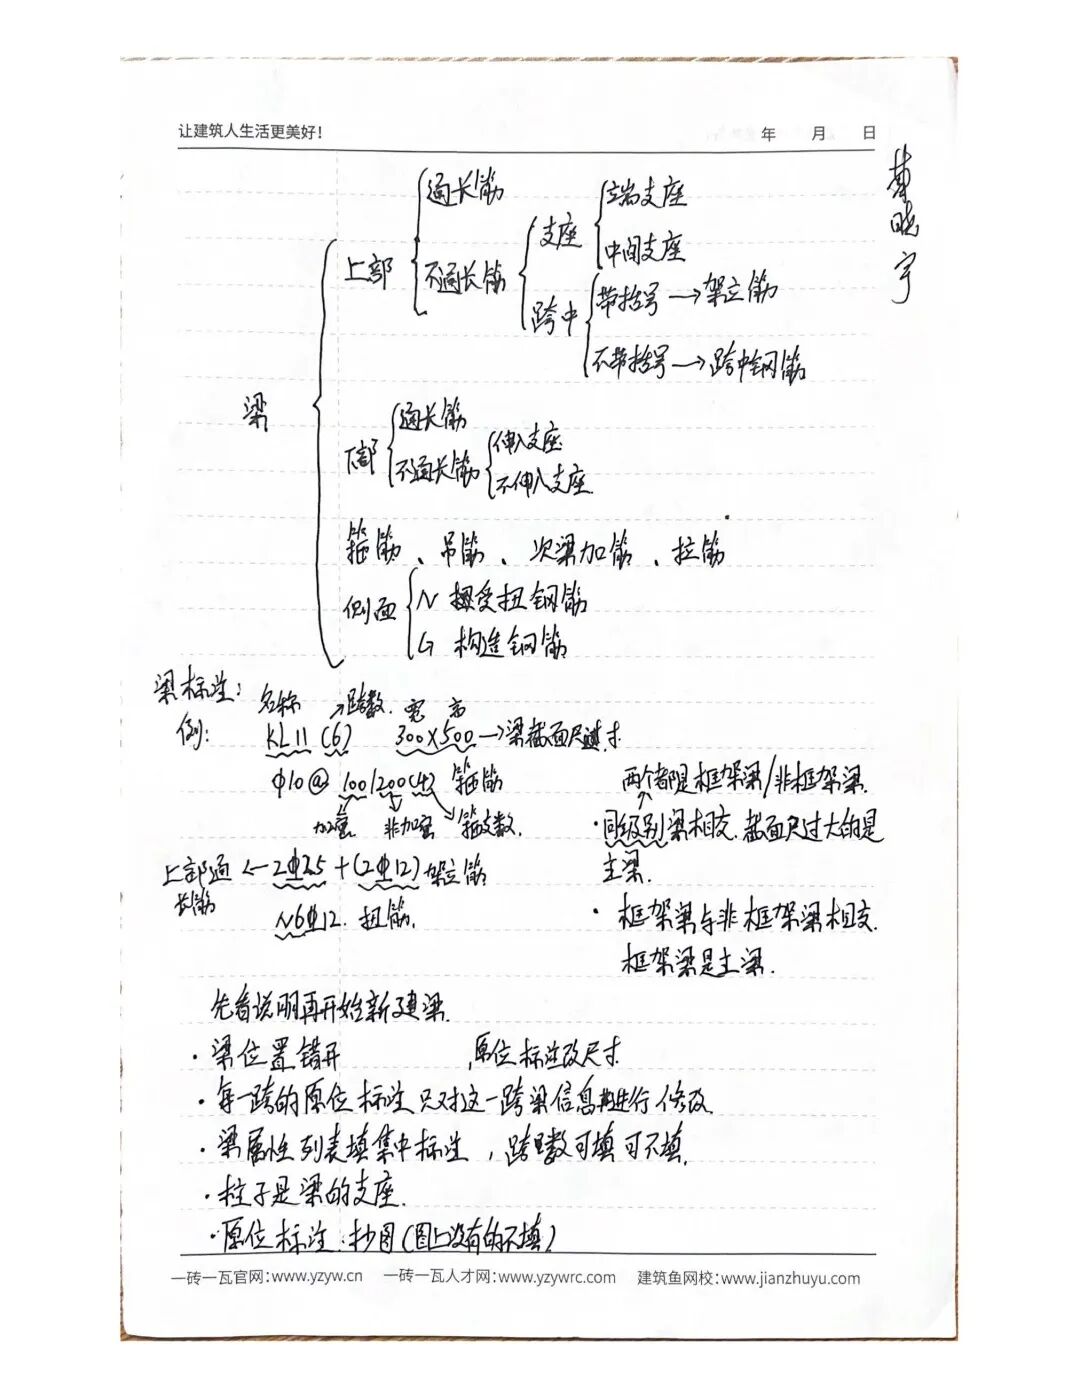 让建筑人生活更美好！ 年 月 日
通长筋
端支座
支座
中间支座
上部
不通长筋
带括号→架立筋
跨中
不带括号→跨中钢筋
梁
通长筋
下部
伸入支座
不通长筋
不伸入支座.
箍筋、吊筋、次梁加筋、拉筋
侧面
N 受扭钢筋
G 构造钢筋
梁标注：
名称 跨数. 宽 高
例: KL11 (6) 300×500→梁截面尺寸
φ10@100/200(4) 箍筋
加密 非加密 箍支数.
上部通长筋←2Φ25+(2Φ12)架立筋
N6Φ12. 扭筋.
两个都是框架梁/非框架梁.
·同级别梁相交.截面尺寸大的是
主梁.
·框架梁与非框架梁相交.
框架梁是主梁.
先看说明再开始新建梁.
·梁位置错开 原位标注改尺寸
·每一跨的原位标注只对这一跨梁信息进行修改.
·梁属性列表填集中标注，跨数可填可不填.
·柱子是梁的支座.
·原位标注:抄图(图上没有的不填)
一砖一瓦官网：www.yzyw.cn 一砖一瓦人才网：www.yzywrc.com 建筑鱼网校：www.jianzhuyu.com